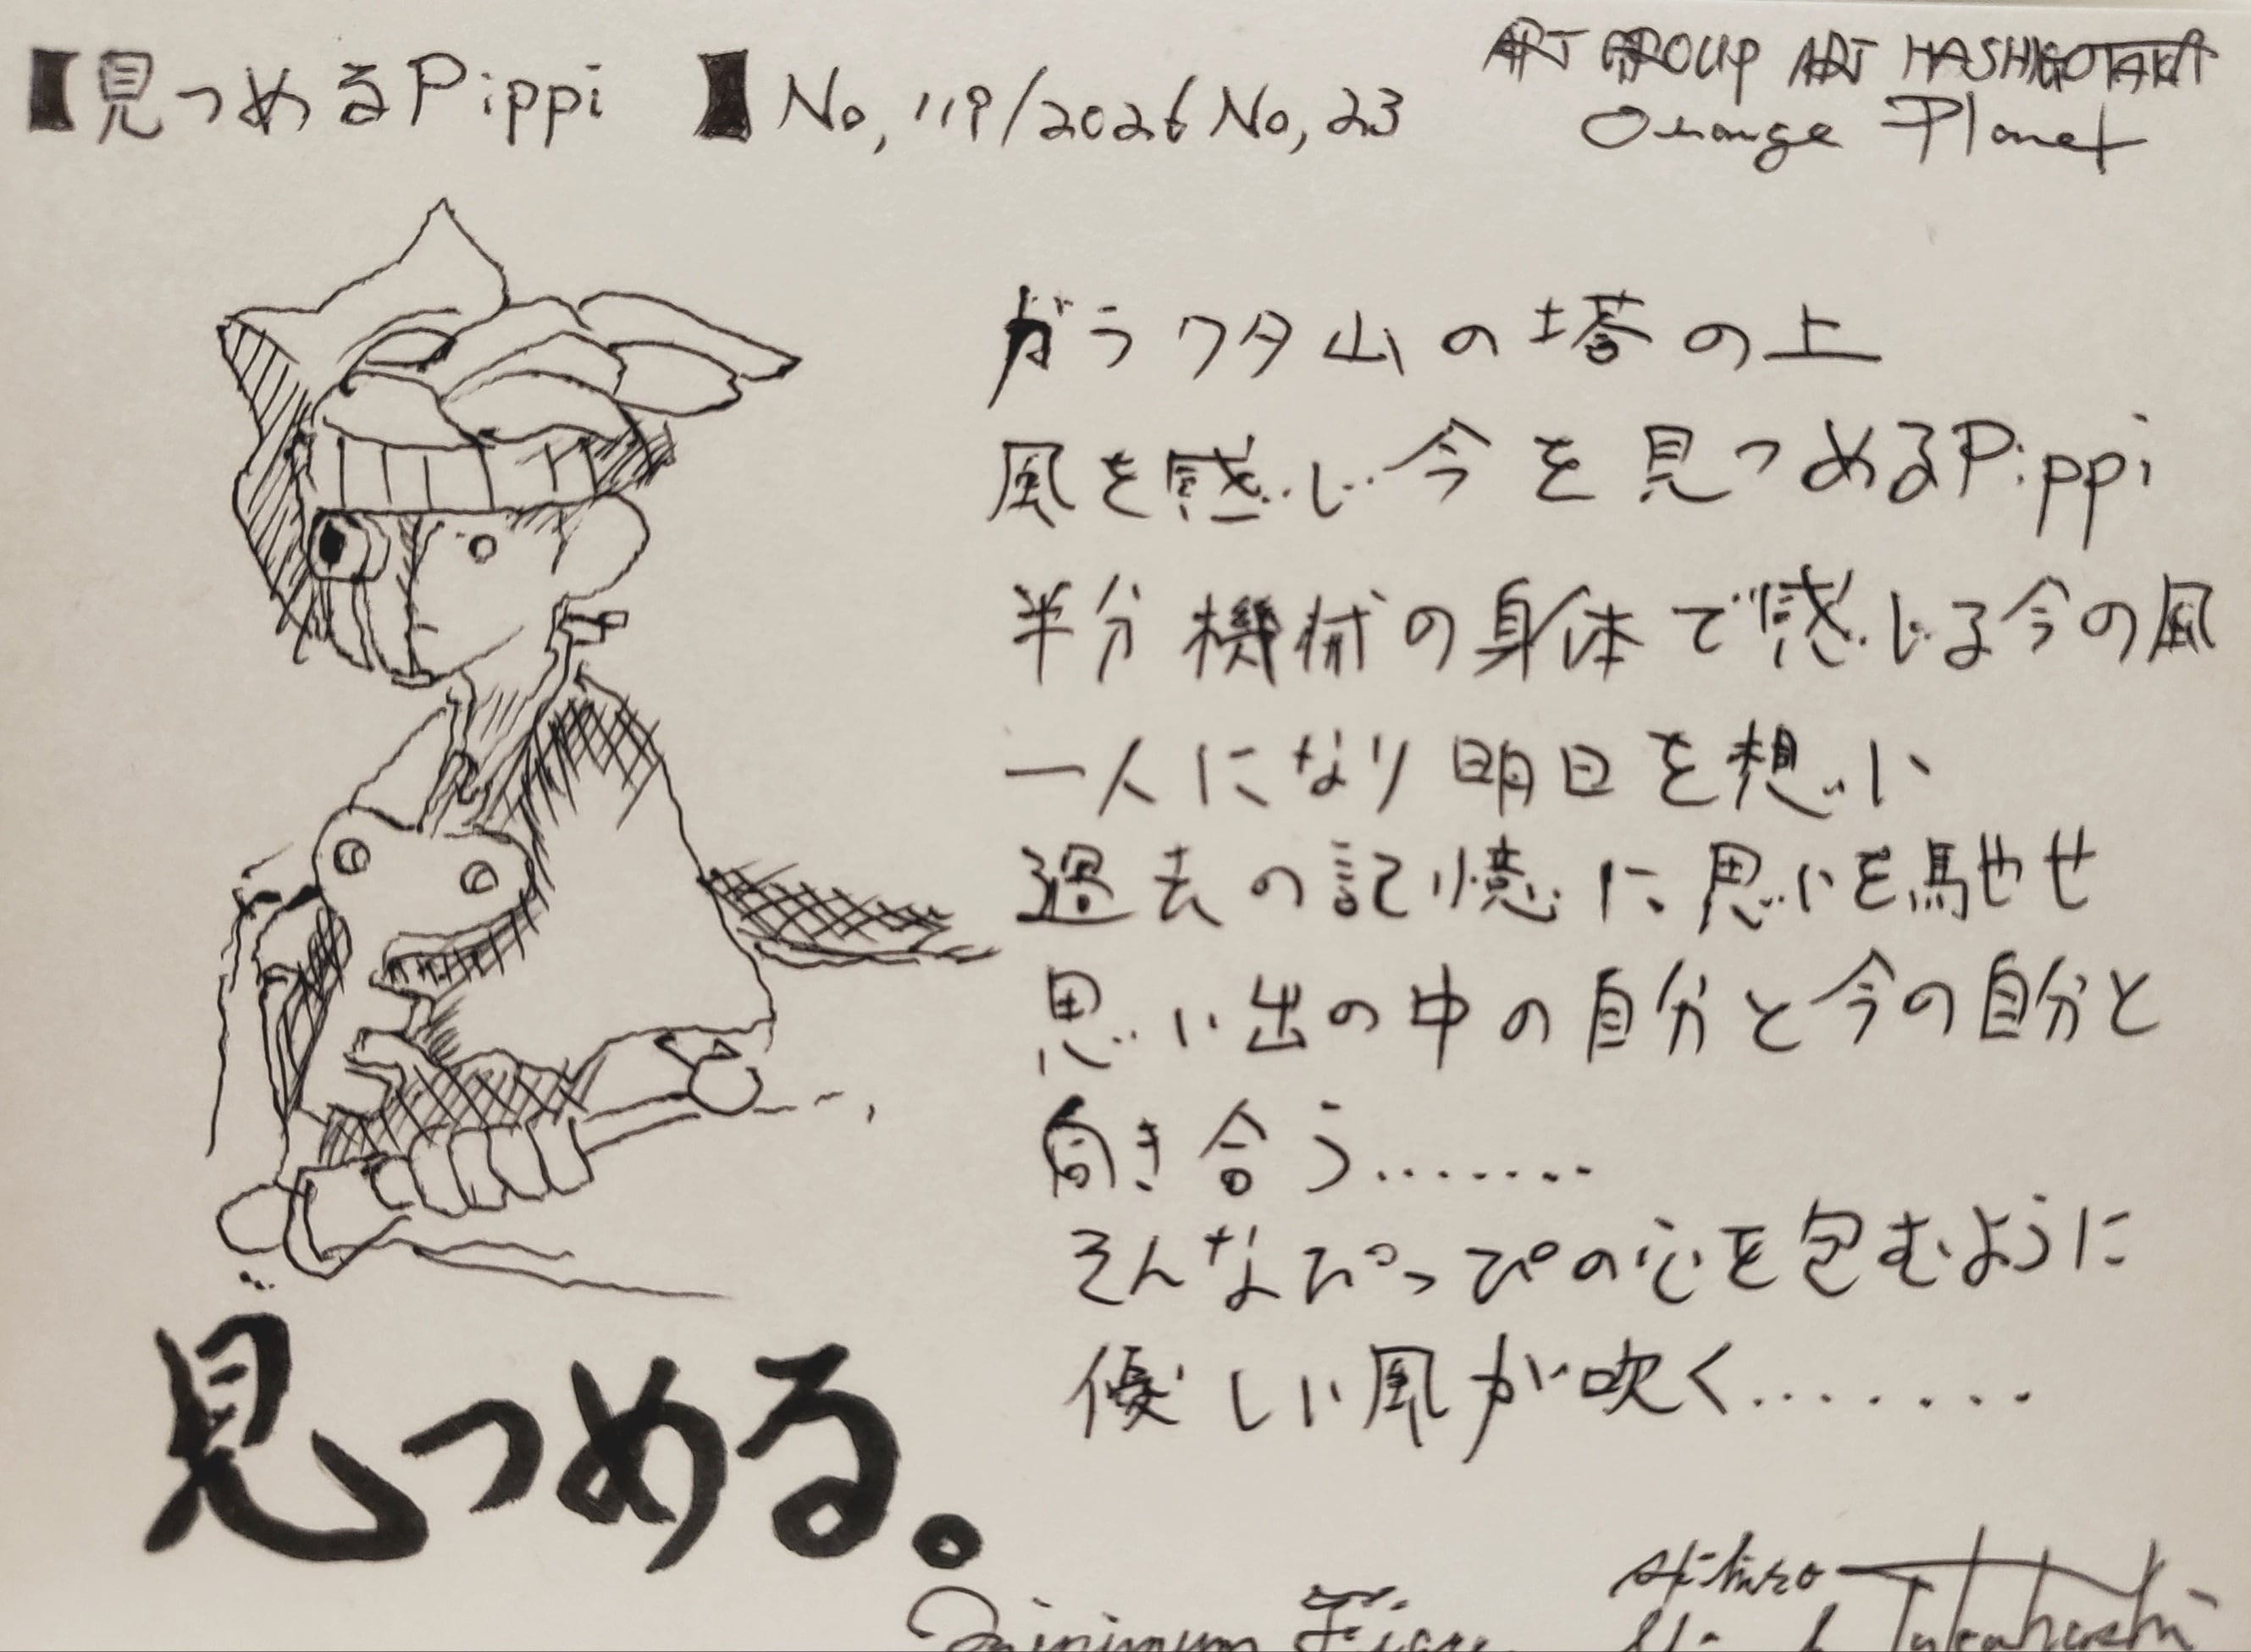 【見つめるPippi 】No, 119/2026 No, 23
ART GROUP ART HASHIGOTAKA
Orange Planet
ガラクタ山の塔の上
風を感じ今を見つめるPippi
半分機械の身体で感じる今の風
一人になり明日を想い
過去の記憶に思いを馳せ
思い出の中の自分と今の自分と
向き合う.......
そんなぴっぴの心を包むように
優しい風が吹く........
見つめる。
Akihiro Takahashi
Minimum